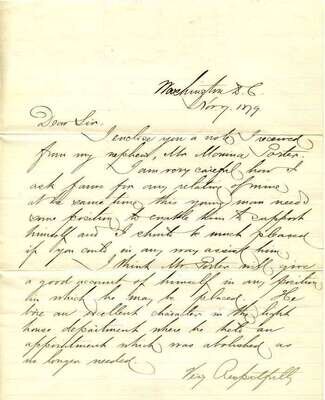 Washington D.C.
Nov 7, 1879
Dear Sir.
I enclose you a note I received
from my nephew, Mr Porter.
I am very careful how I
ask favors for any relative of mine
at the same time this young man needs
some position to enable them to support
himself and I should be much pleased
if you could in any way assist him
I think Mr Porter will give
a good account of himself in any position
in which he may be placed. He
bore an excellent character in the light
house department where he held an
appointment which was abolished as
no longer needed.
Very Respectfully